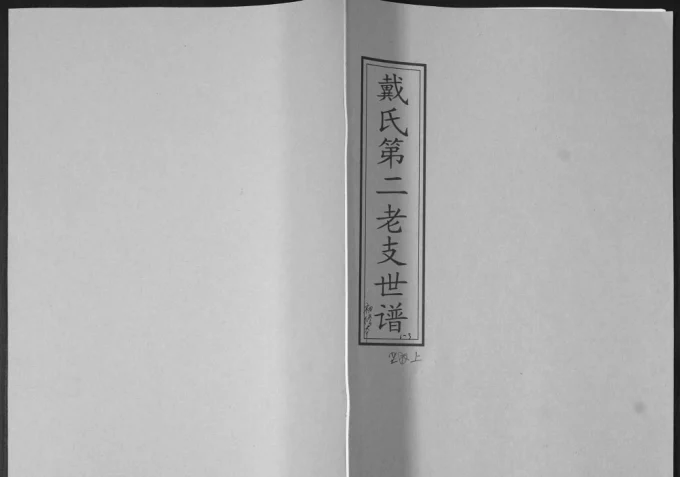 戴氏第二老支世谱
1-3
上